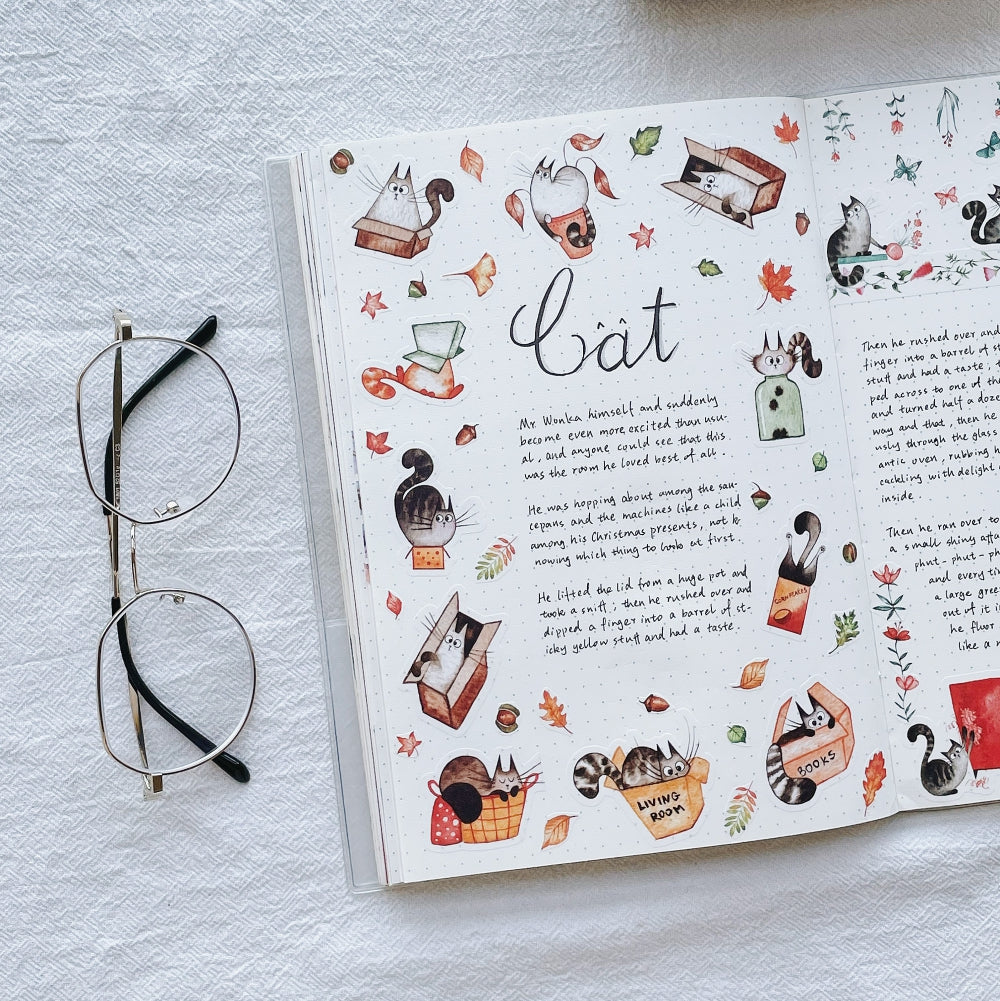 Cât
Mr. Wonka himself and suddenly
become even more excited than usu-
al, and anyone could see that this
was the room he loved best of all.
He was hopping about among the sau-
cepans and the machines like a child
among his Christmas presents, not k-
nowing which thing to look at first.
He lifted the lid from a huge pot and
took a sniff; then he rushed over and
dipped a finger into a barrel of st-
icky yellow stuff and had a taste.
CORN FLAKES
LIVING
ROOM
BOOKS
Then he rushed over and
finger into a barrel of
stuff and had a taste;
ped across to one of the
and turned half a doze
way and that, then he
usly through the glass
antic oven, rubbing
cackling with delight
inside.
Then he ran over to
a small shiny
phut-phut-
and every
a large
out of it
he floor
like a